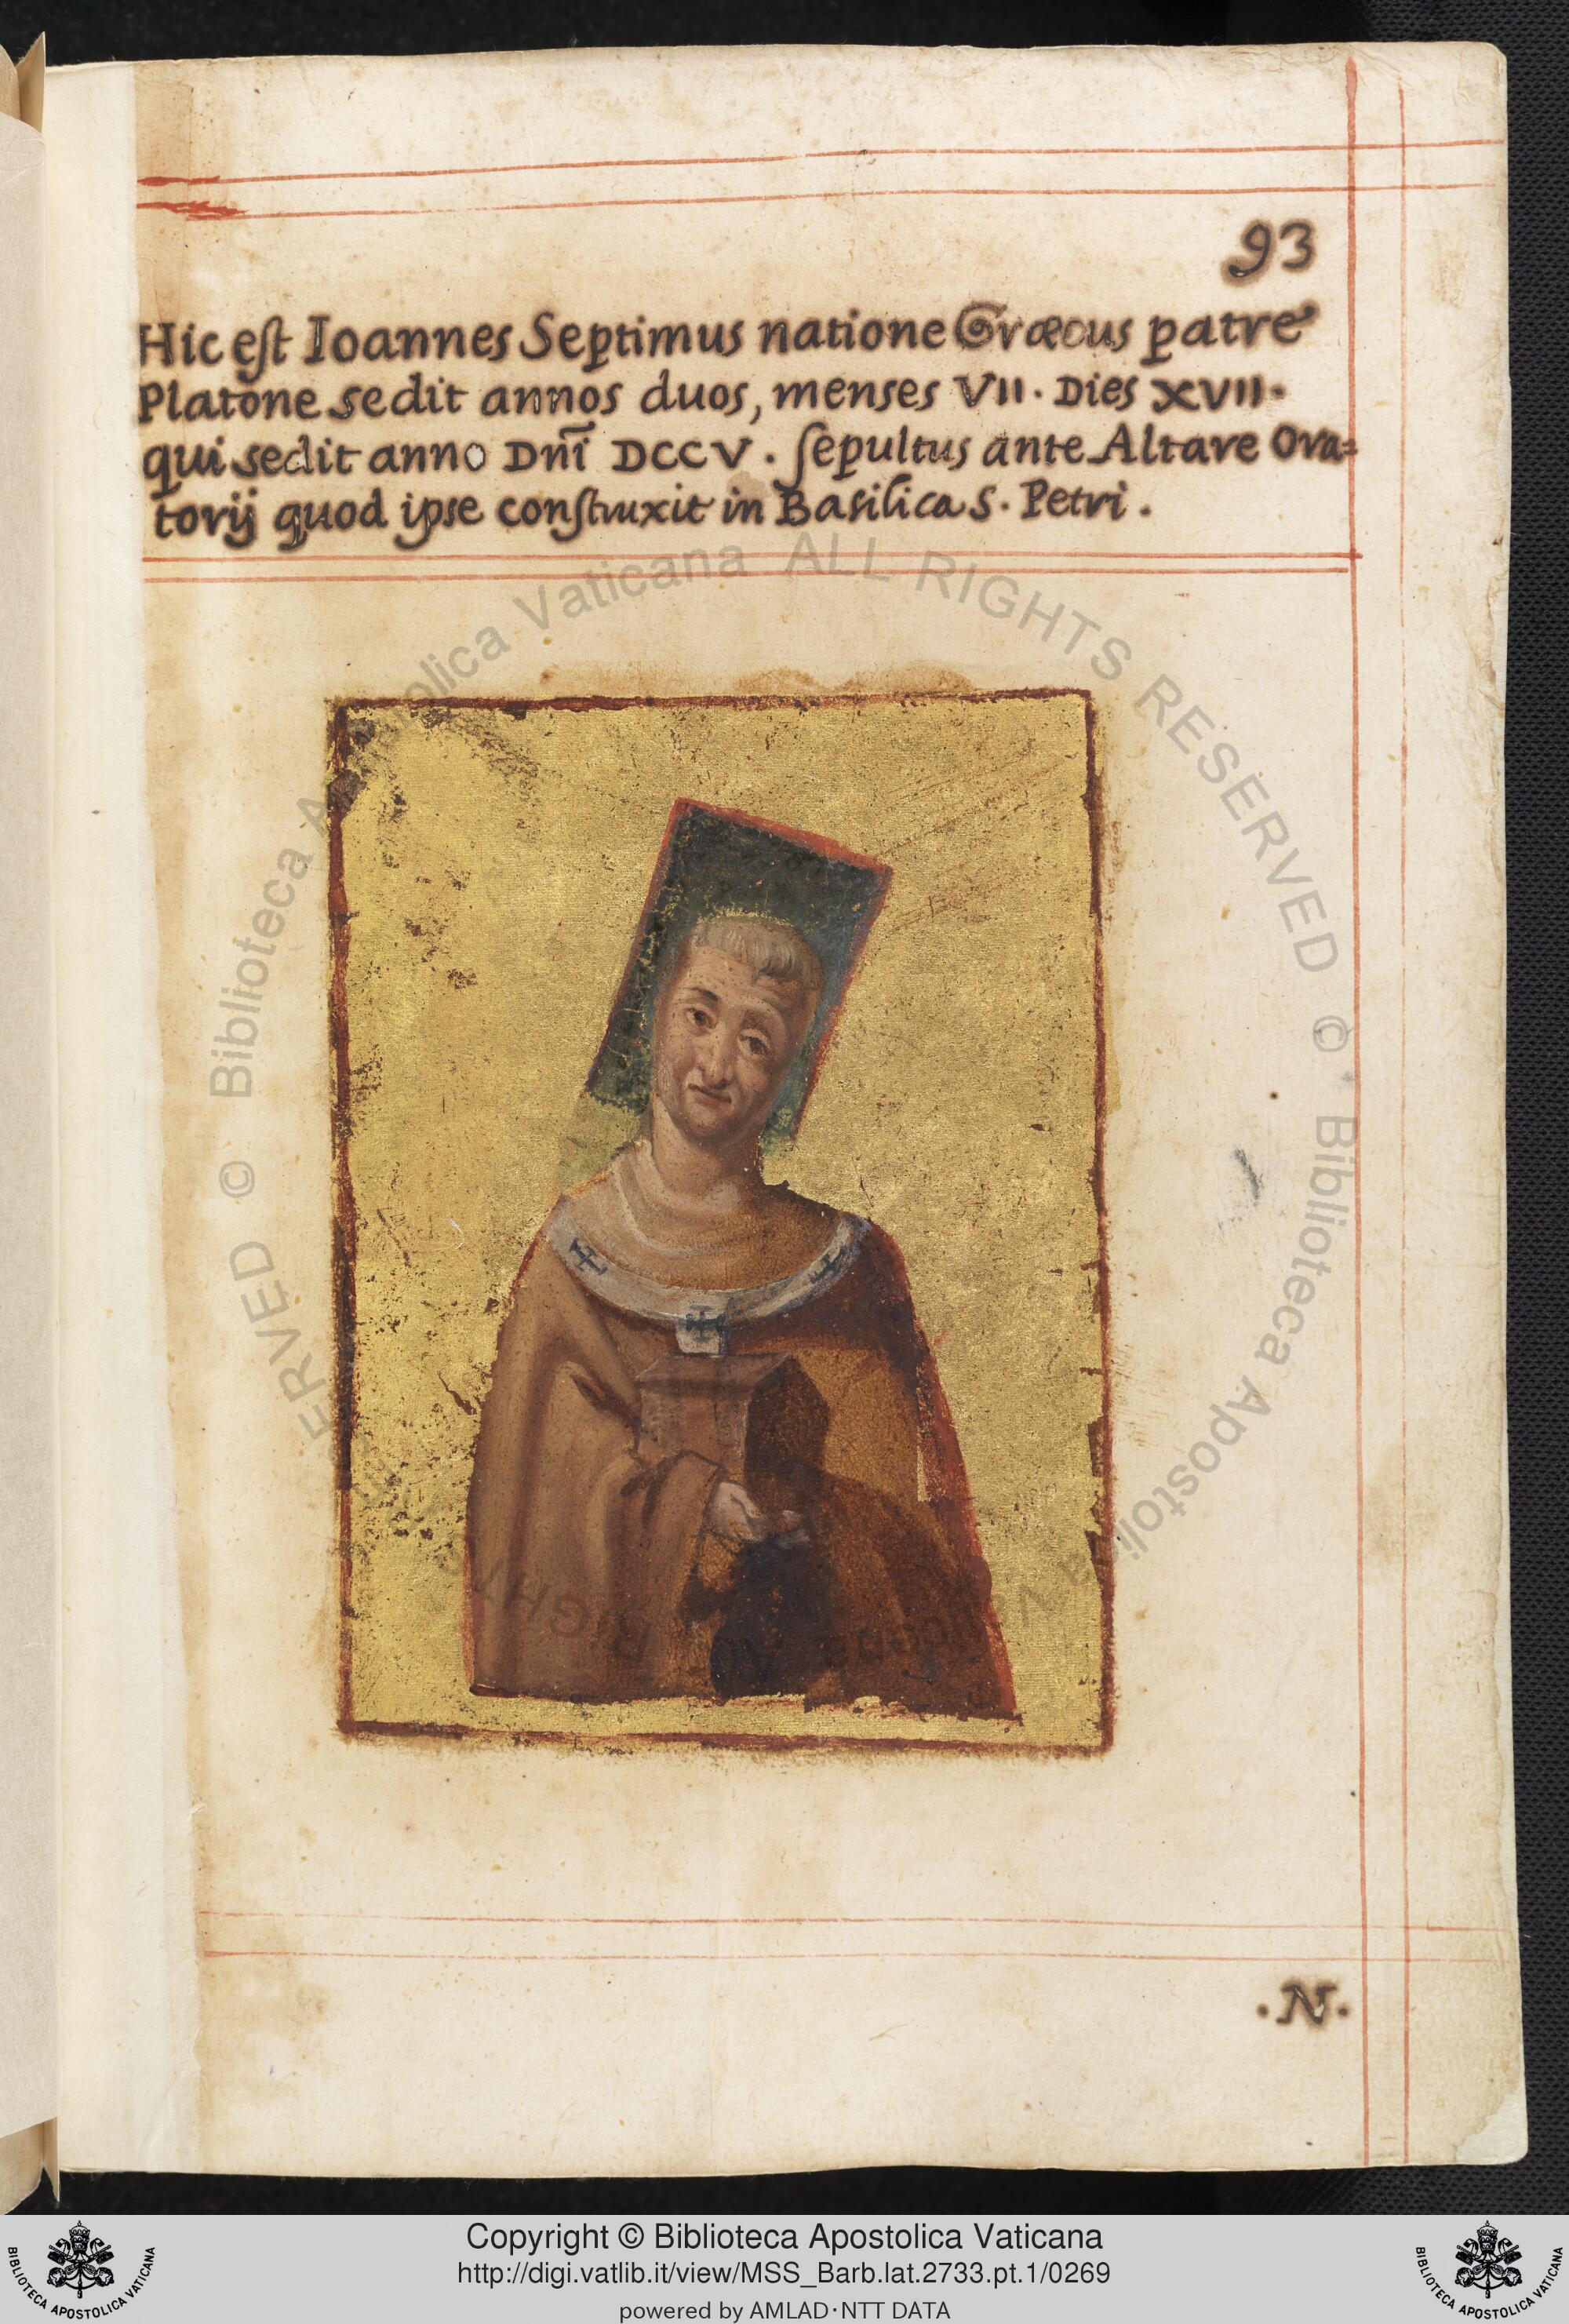 93
Hic est Ioannes Septimus natione Græcus patre
Platone sedit annos duos, menses VII. Dies XVII.
qui sedit anno Dnī DCCV. sepultus ante Altare Ora=
torij quod ipse construxit in Basilica S. Petri.
© Biblioteca Apostolica Vaticana ALL RIGHTS RESERVED © Biblioteca Apostolica Vaticana ALL RIGHTS RESERVED
.N.
Copyright © Biblioteca Apostolica Vaticana
http://digi.vatlib.it/view/MSS_Barb.lat.2733.pt.1/0269
powered by AMLAD·NTT DATA
BIBLIOTECA APOSTOLICA VATICANA
BIBLIOTECA APOSTOLICA VATICANA